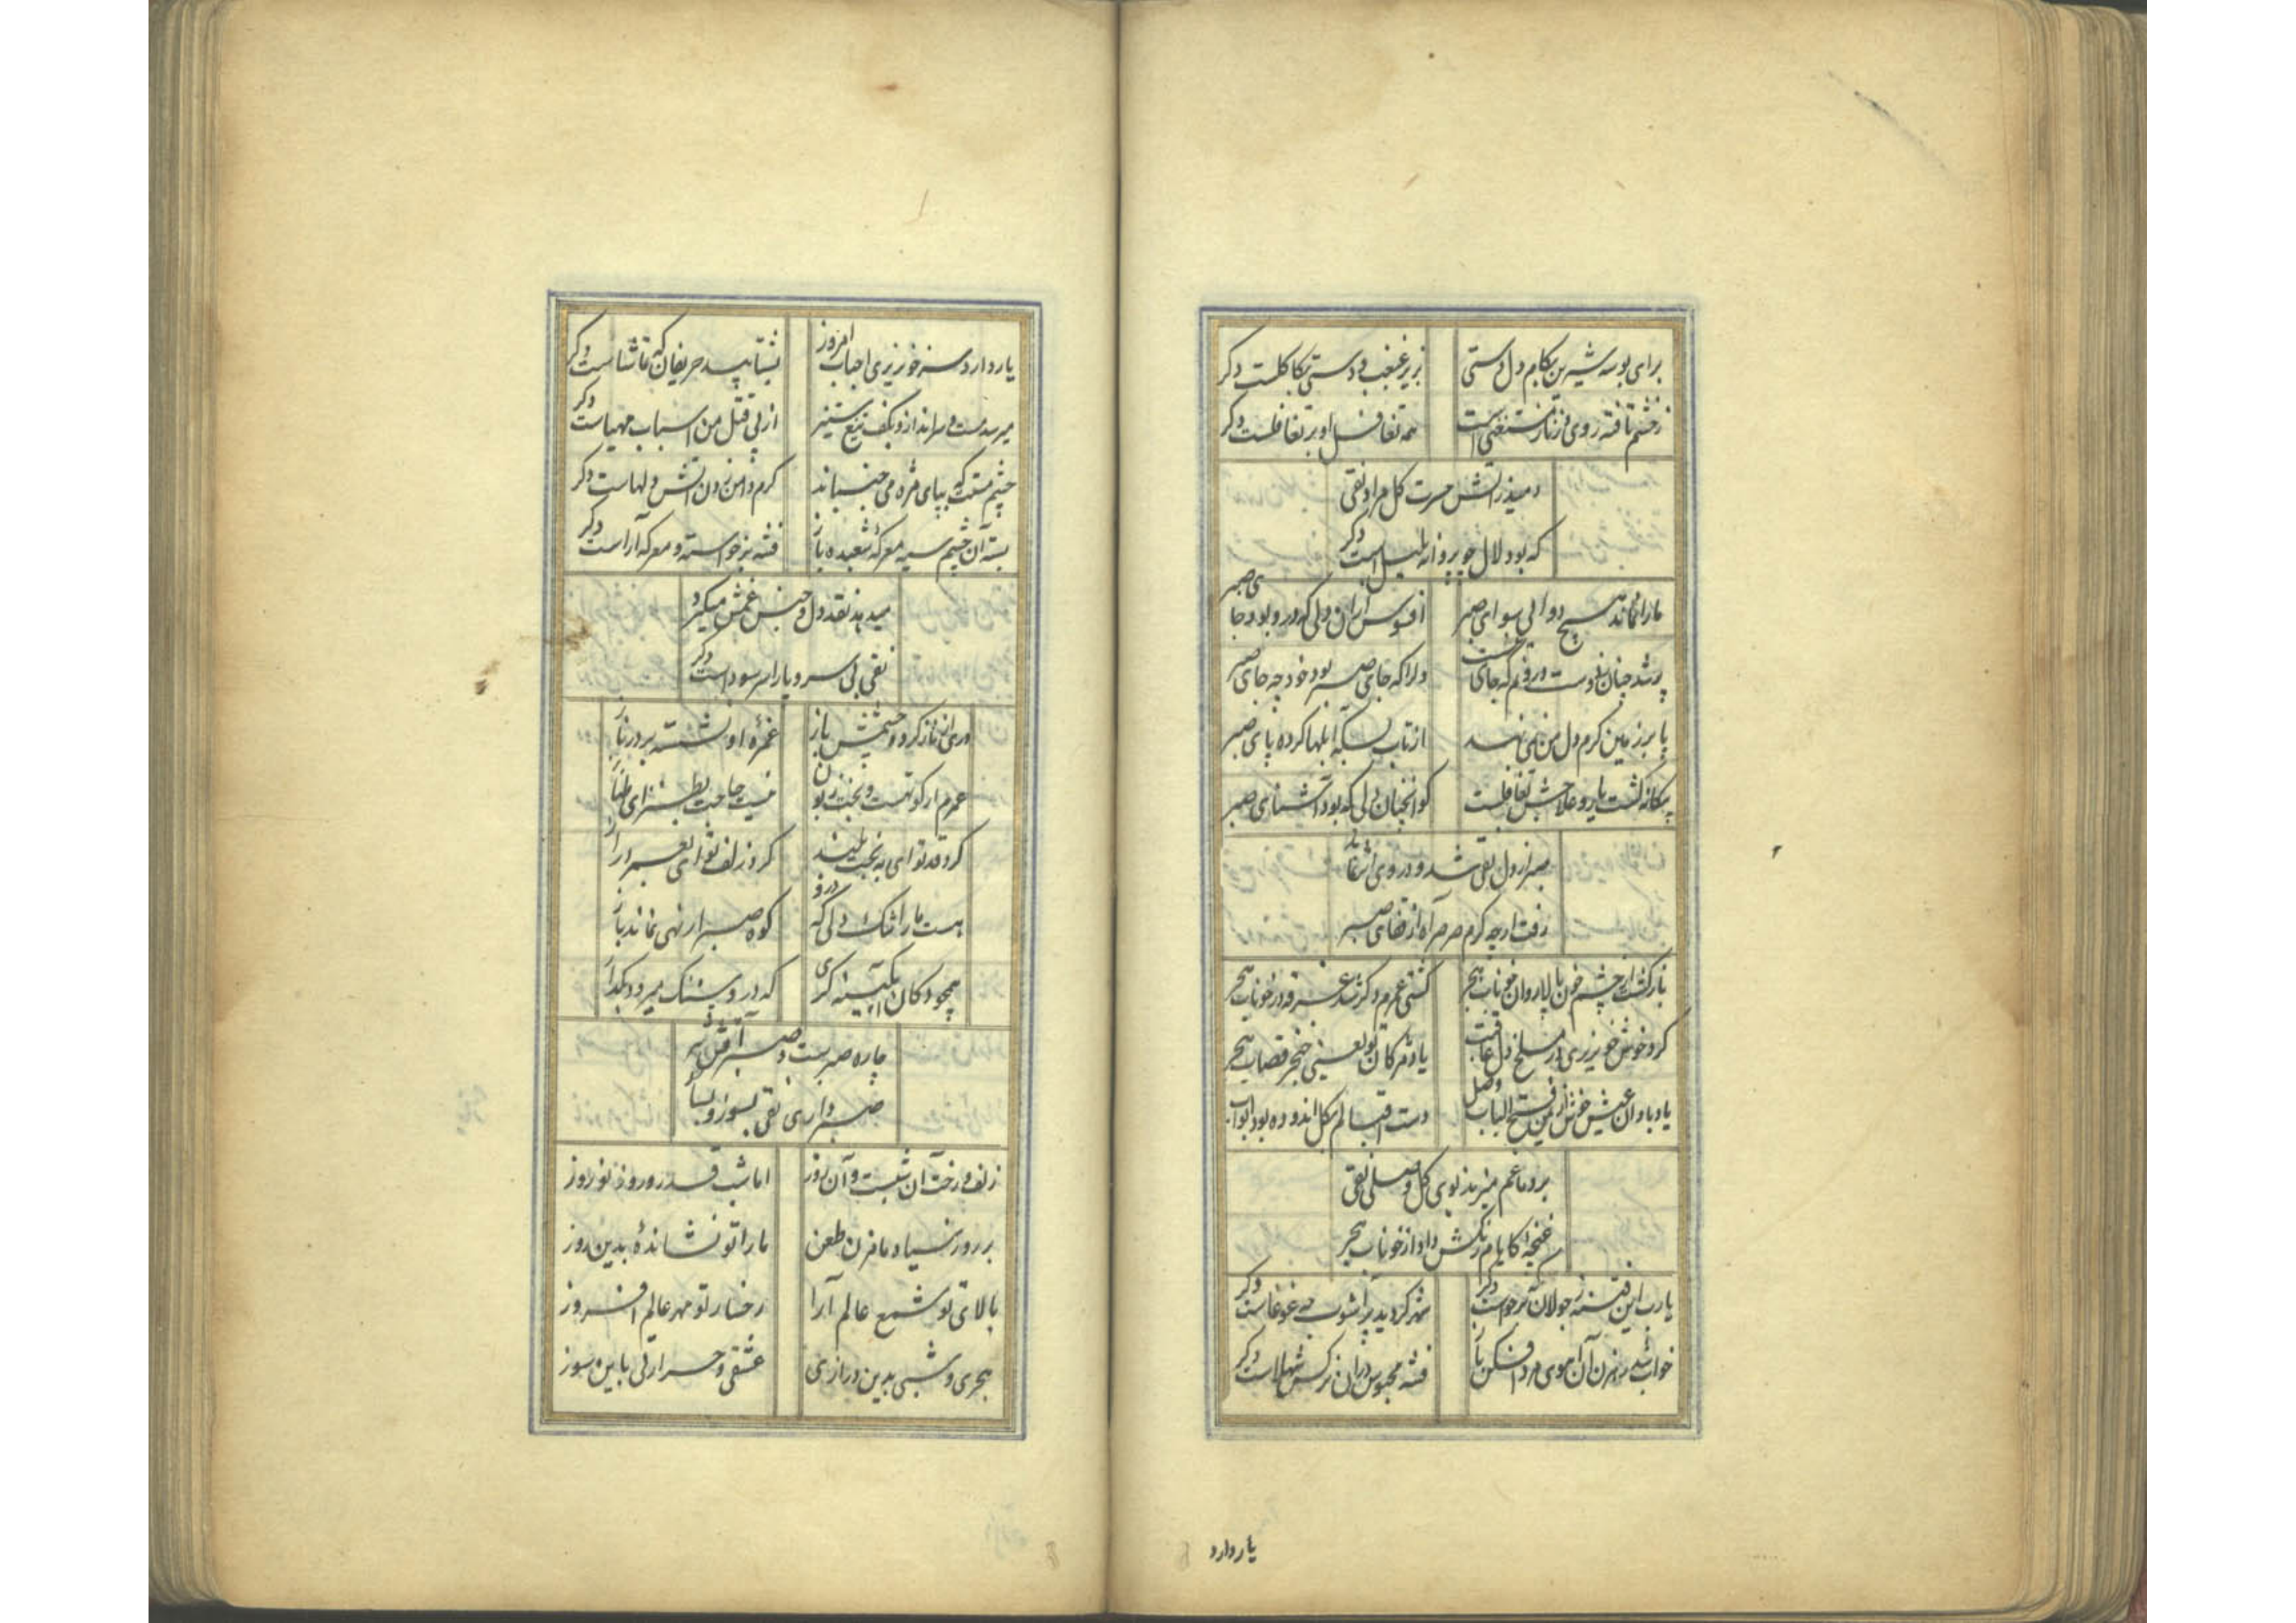 برای بوسه شیرین بکام دل دستی
بزیر غبغب و دستی بکاکلست دکر
زخشم تافته روی
همه تغافل او بر تغافلست دکر
دمید زاتش حسرت کل مراد نقی
که بود لال چو پروانه بلبل است دکر
مارا نماند هیچ دوائی سوای صبر
افسوس ازان دلی که درو بود جای صبر
پر شد چنان ز دوست درونم که جای نیست
دلرا که جای صبر بود خود چه جای صبر
پا بر زمین کرم دل من نمی نهد
از تاب سینه ابلها کرده پای صبر
بیکانه کشت یار و علاجش تغافلست
کو انچنان دلی که بود آشنای صبر
صبر از دل نقی شد و دروی اثر نماند
رفت ارچه کرم صرصر آه از قفای صبر
باز کشت از چشم خون پالا روان خوناب هجر
کشتی عمرم دکر شد غرقه در خوناب هجر
کرد خوش خونریزی در مسلخ دل عاقبت
یاد مژکان تو یعنی خنجر قصاب هجر
یاد باد آن عیش خوش کز فتح الباب وصل
دست اقبالم بکل اندوده بود ابواب
بر دماغم میزند بوی کل وصلی نقی
غنچه کایام رنکش داد از خوناب هجر
یارب این فتنه ز جولان که برخواست دکر
شهر کردید پر آشوب چه غوغاست دکر
خواب شد رهزن آن آهوی مرد افکن باز
فتنه محبوس در ان نرکس شهلاست دکر
یار دارد
یار دارد سر خونریزی احباب امروز
بشتابید حریفان که تماشاست دکر
میرسد مست و سرانداز و بکف تیغ ستیز
از پی قتل من اسباب مهیاست دکر
چشم مستت که بپای مژه می جنباند
کرم دامن زدن آتش دلهاست دکر
بسته آن چشم سیه معرکه شعبده باز
فتنه برخواسته و معرکه آراست دکر
میدهد نقد دل و جنس غمش میکیرد
نقی بی سر و پا را سر سوداست دکر
دری از ناز کرد چشمش باز
غمزه او نشسته بر در ناز
عمرم ار کوتهست و بخت زبون
نیست حاجت بطنز ای طناز
کرد قد تو ای به نخت بلند
کرد زلف تو ای بعمر دراز
هست ما را تنک دلی که درو
کوه صبر ار نهی نماند باز
همچو دکان آبکینه کری
که درو سنک میرود بکداز
چاره صبرست و صبر آتش تیز
صبر داری نقی بسوز و بساز
زلف و رخت آن شبست و آن روز
اما شب قدر و روز نوروز
بر روز سیاه ما مزن طعن
ما را تو نشاندۀ بدین روز
بالای تو شمع عالم آرا
رخسار تو مهر عالم افروز
هجری و شبی بدین درازی
عشقی و حرارتی باین سوز